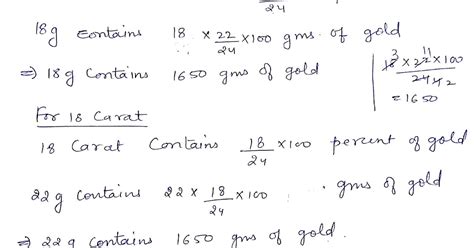 24
18g contains 18 × 22/24 × 100 gms of gold
⇒ 18g contains 1650 gms of gold
18³ × 22¹¹ × 100
24 4 2
= 1650
For 18 Carat
18 Carat Contains 18/24 × 100 percent of gold
22g contains 22 × 18/24 × 100 gms of gold
⇒ 22g contains 1650 gms of gold.